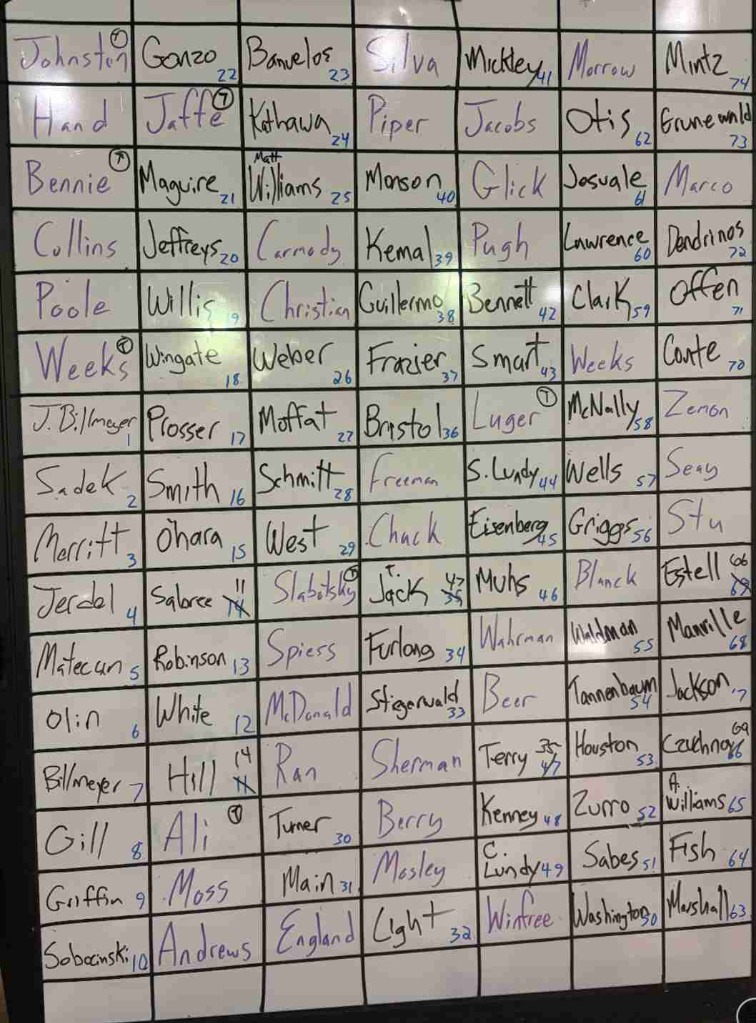 Johnston T Gonzo 22 Banuelos 23 Silva Mickley 41 Morrow Mintz 74
Hand Jaffe T Kathawa 24 Piper Jacobs Otis 62 Grunewald 73
Bennie T Maguire 21 Matt Williams 25 Monson 40 Glick Josuale 61 Marco
Collins Jeffreys 20 Carmody Kemal 39 Pugh Lawrence 60 Dendrinos 72
Poole Willis 9 Christian Guillermo 38 Bennett 42 Clark 59 Offen 71
Weeks T Wingate 18 Weber 26 Frazier 37 Smart 43 Weeks Conte 70
J. Billmeyer 1 Prosser 17 Moffat 27 Bristol 36 Luger T McNally 58 Zemon
Sadek 2 Smith 16 Schmitt 28 Freeman S. Lundy 44 Wells 57 Seay
Merritt 3 O'hara 15 West 29 Chuck Eisenberg 45 Griggs 56 Stu
Jerdel 4 Sabree 11 14 Slabotsky T T. Jack 47 35 Muhs 46 Blanck Estell 66
Matecun 5 Robinson 13 Spiess Furlong 34 Wahrman Waldman 55 Manville 68
Olin 6 White 12 McDonald Stigerwald 33 Beer Tannenbaum 54 Jackson 7
Billmeyer 7 Hill 14 11 Ran Sherman Terry 35 47 Houston 53 69 66
Gill 8 Ali T Turner 30 Berry Kenney 48 Zurro 52 A. Williams 65
Griffin 9 Moss Main 31 Mosley C. Lundy 49 Sabes 51 Fish 64
Sobocinski 10 Andrews England Light 32 Winfree Washington 50 Marshall 63